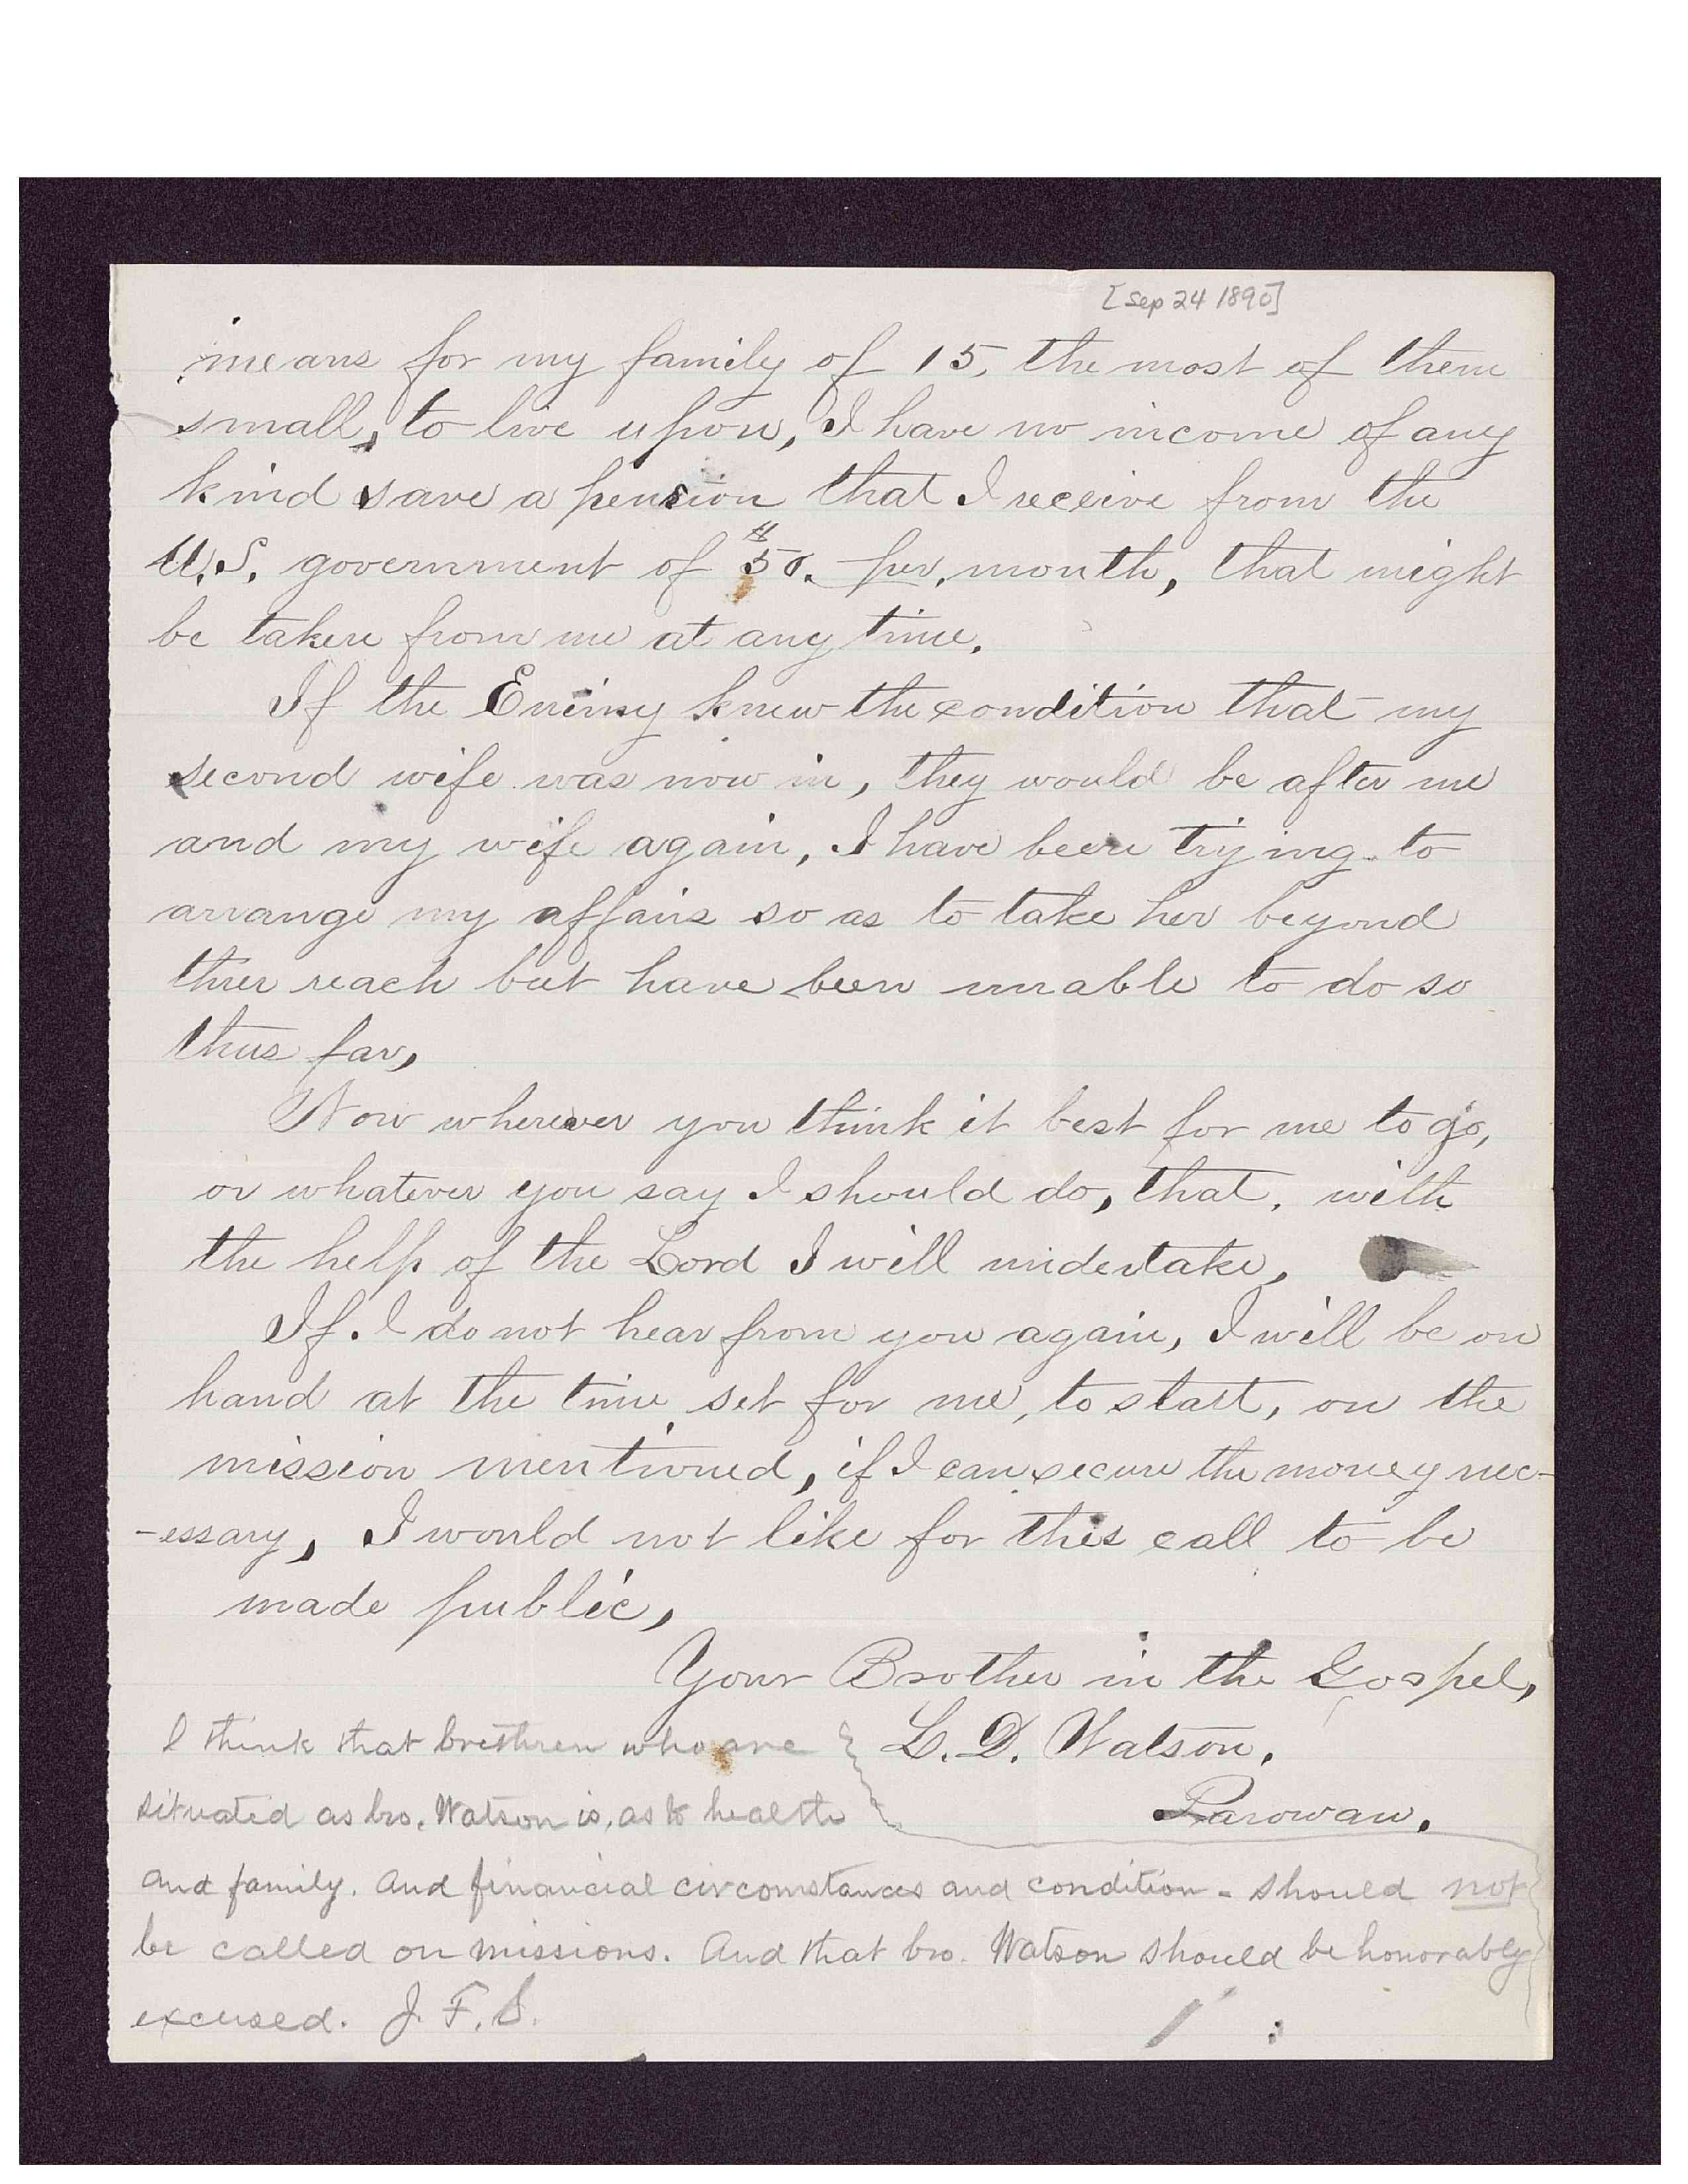 [Sep 24 1890]
means for my family of 15, the most of them
small, to live upon, I have no income of any
kind save a pension that I receive from the
U.S. government of $50. per. month, that might
be taken from me at any time.
If the Enimy knew the condition that my
second wife was now in, they would be after me
and my wife again, I have been trying to
arrange my affairs so as to take her beyond
thier reach but have been unable to do so
thus far,
Now wherever you think it best for me to go,
or whatever you say I should do, that, with
the help of the Lord I will undertake,
If I do not hear from you again, I will be on
hand at the time set for me, to start, on the
mission mentioned, if I can secure the money nec-
-essary, I would not like for this call to be
made public,
Your Brother in the Gospel,
L. D. Watson.
Parowan.
I think that brethren who are
situated as bro. Watson is, as to health
and family. And financial circomstances and condition - should not
be called on missions. And that bro. Watson should be honorably
excused. J. F. S.